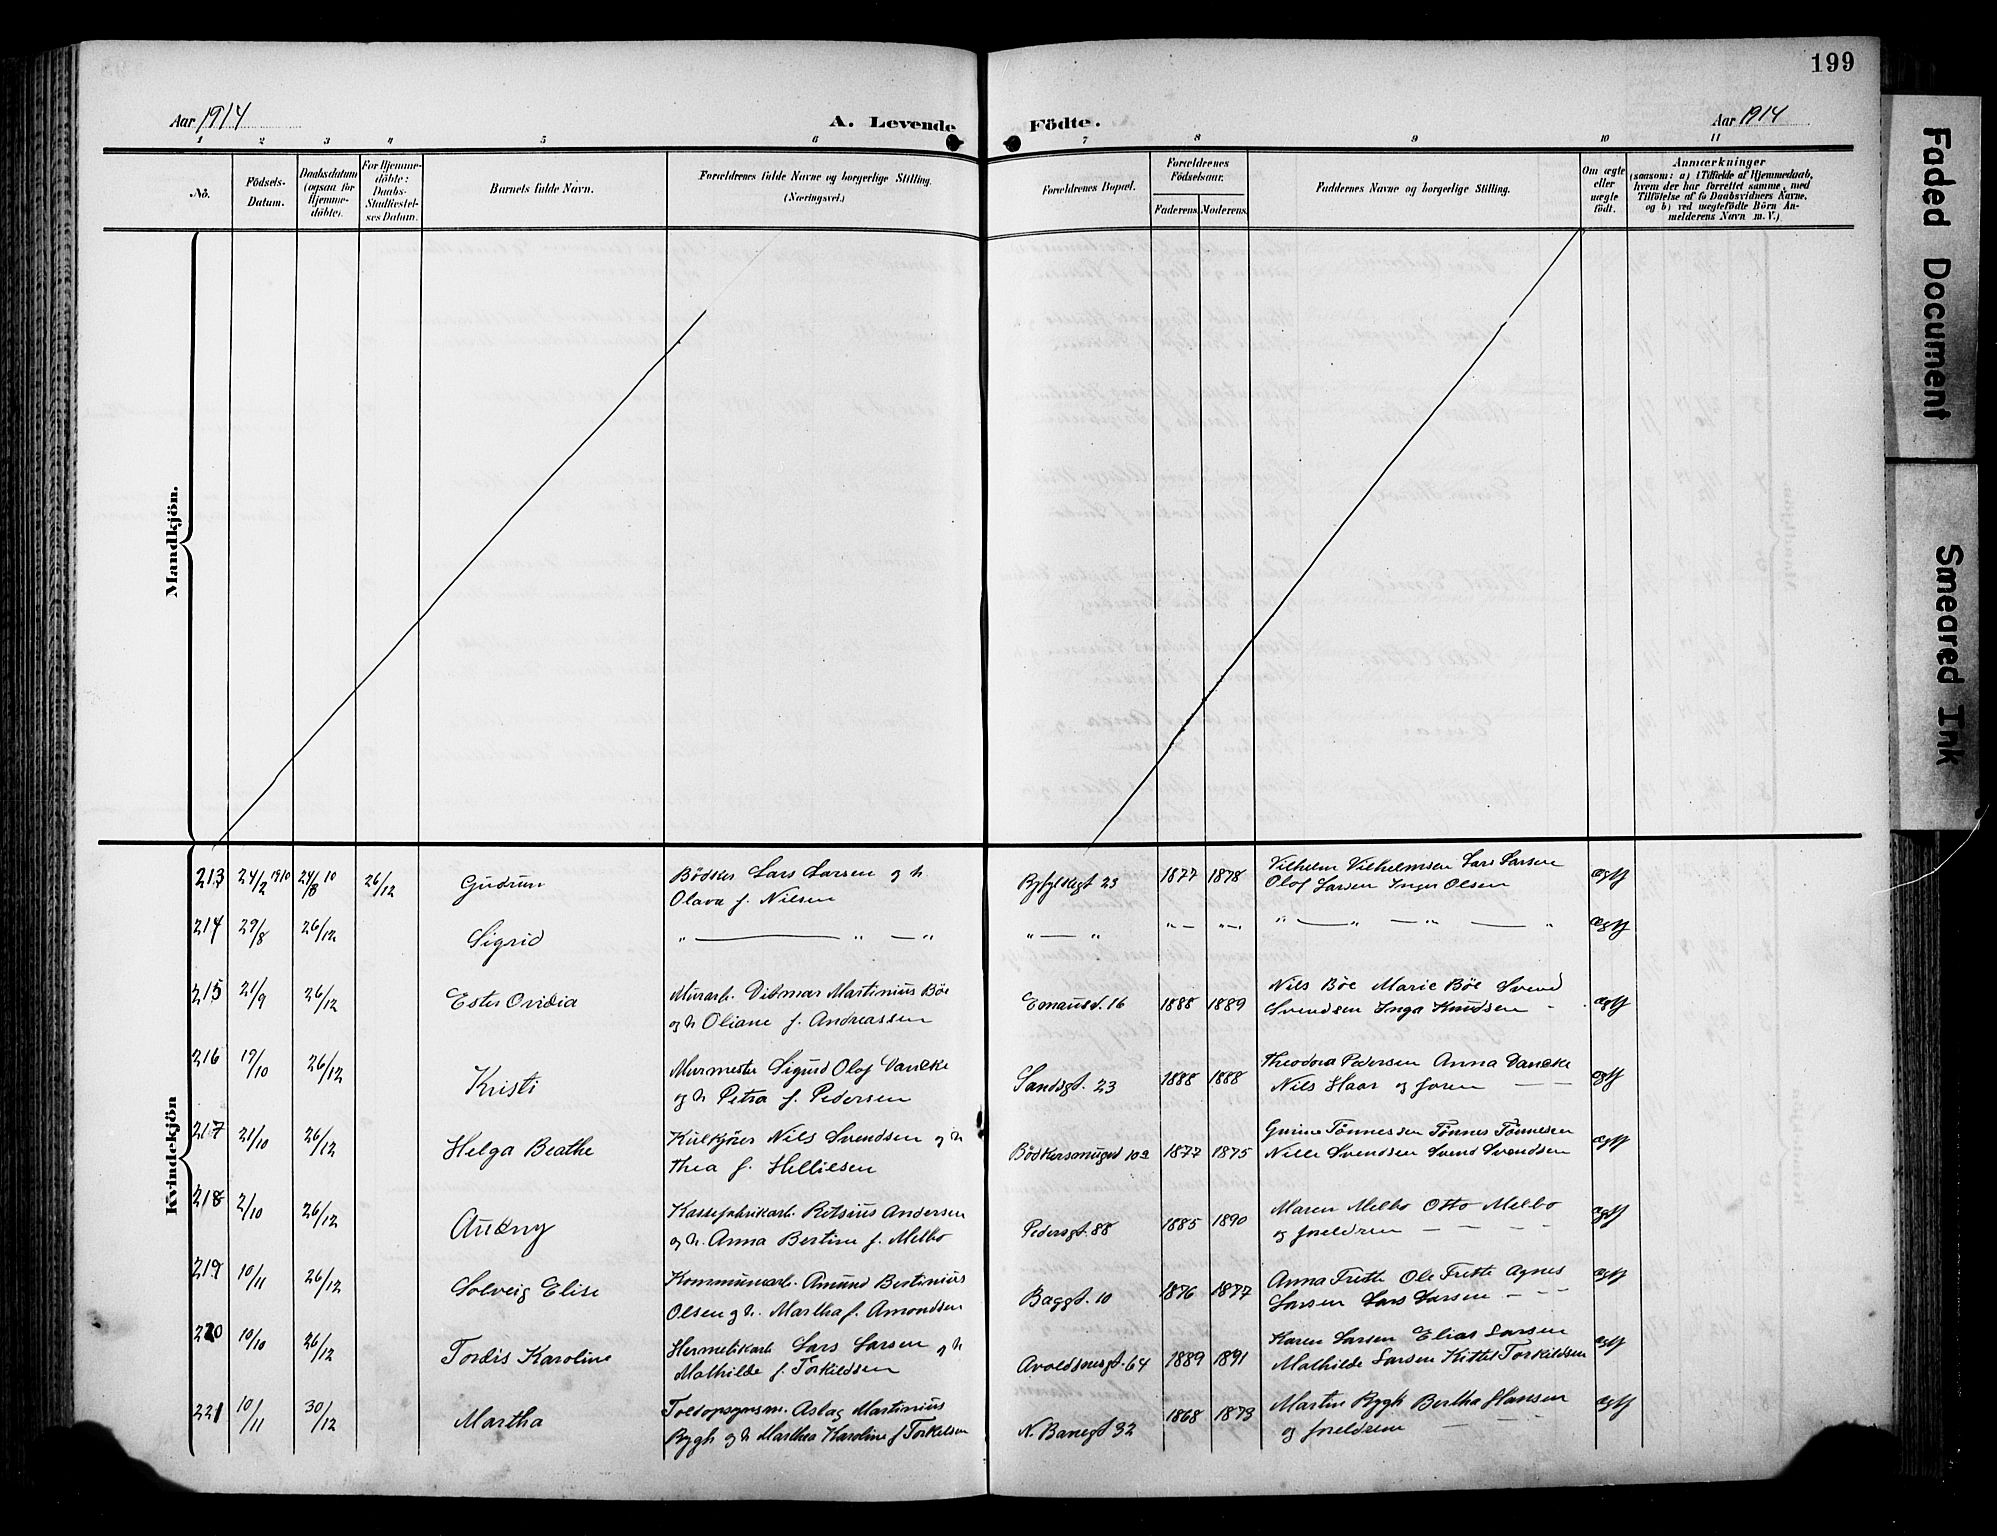 199
Aar 1914
A. Levende
Födte.
Aar 1914
1 2 3 4 5 6 7 8 9 10 11
No.
Födsels-
Datum.
Daabsdatum
(ogsaa for
Hjemme-
döbte).
For Hjemme-
döbte:
Daabs-
Stadfæstel-
ses Datum.
Barnets fulde Navn.
Forældrenes fulde Navne og borgerlige Stilling.
(Næringsvei.)
Forældrenes Bopæl.
Forældrenes
Födselsaar.
Faderens. Moderens.
Faddernes Navne og borgerlige Stilling.
Om ægte
eller
uægte
født.
Anmærkninger
(saasom: a) i Tilfælde af Hjemmedaab,
hvem der har forrettet samme, med
Tilföielse af to Daabsvidners Navne,
og b) ved uægtefödte Börn An-
melderens Navn m. V.)
Mandkjön.
Kvindekjön
213 24/2 1910 24/8 10 26/12 Gudrun
Bødker Lars Larsen og h.
Olava f. Nilsen
Ryfylkegt 23 1877 1878
Vilhelm Vilhelmsen Lars Larsen
Olof Larsen Inger Olsen
ægtf
214 29/8 26/12 Sigrid
" — " — " " — " " — " — " " — " — " — "
ægtf
215 21/9 26/12 Ester Ovidia
Murarb. Ditmar Martinius Bøe
og h. Oliane f. Andreassen
Emausd. 16 1888 1889
Nils Bøe Marie Bøe Svend
Svendsen Inga Knudsen -
ægtf
216 19/10 26/12 Kristi
Murmester Sigurd Olof Dancke
og h. Petra f. Pedersen
Sandsgt. 23 1888 1888
Theodora Pedersen Anna Dancke
Nils Haar og foren — —
ægtf
217 21/10 26/12 Helga Beathe
Kulkjører Nils Svendsen og h.
Thea f. Helliesen
10a 1877 1875
Tønnessen Tønnes Tønnesen
Nille Svendsen Svend Svendsen
ægtf
218 2/10 26/12 Audny
Kassefabrikarb. Andersen
og h. Anna Bertine f. Melbo
Pedersgt. 88 1885 1890
Maren Melbo Otto Melbo
og foreldren — — — —
ægtf
219 10/11 26/12 Solveig Elise
Kommunearb. Amund Bertinius
Olsen og h. Martha f. Amondsen
Baggt. 10 1876 1877
Anna Frette Ole Frette Agnes
Larsen Lars Larsen - - -
ægtf
220 10/10 26/12 Tordis Karoline
Hermetikarb Lars Larsen og h
Mathilde f. Torkildsen
Avoldsnesgt. 64 1889 1891
Karen Larsen Elias Larsen
Mathilde Larsen Kittel Torkildsen
ægtf
221 10/11 30/12 Martha
Toldopsynsm. Aslag Martinius
Rygh og h Marthea Karoline f Torkelsen
N. Banegt 32 1868 1873
Martin Rygh Bertha Hansen
og foreldrene — — —
ægtf
Faded Document
Smeared Ink